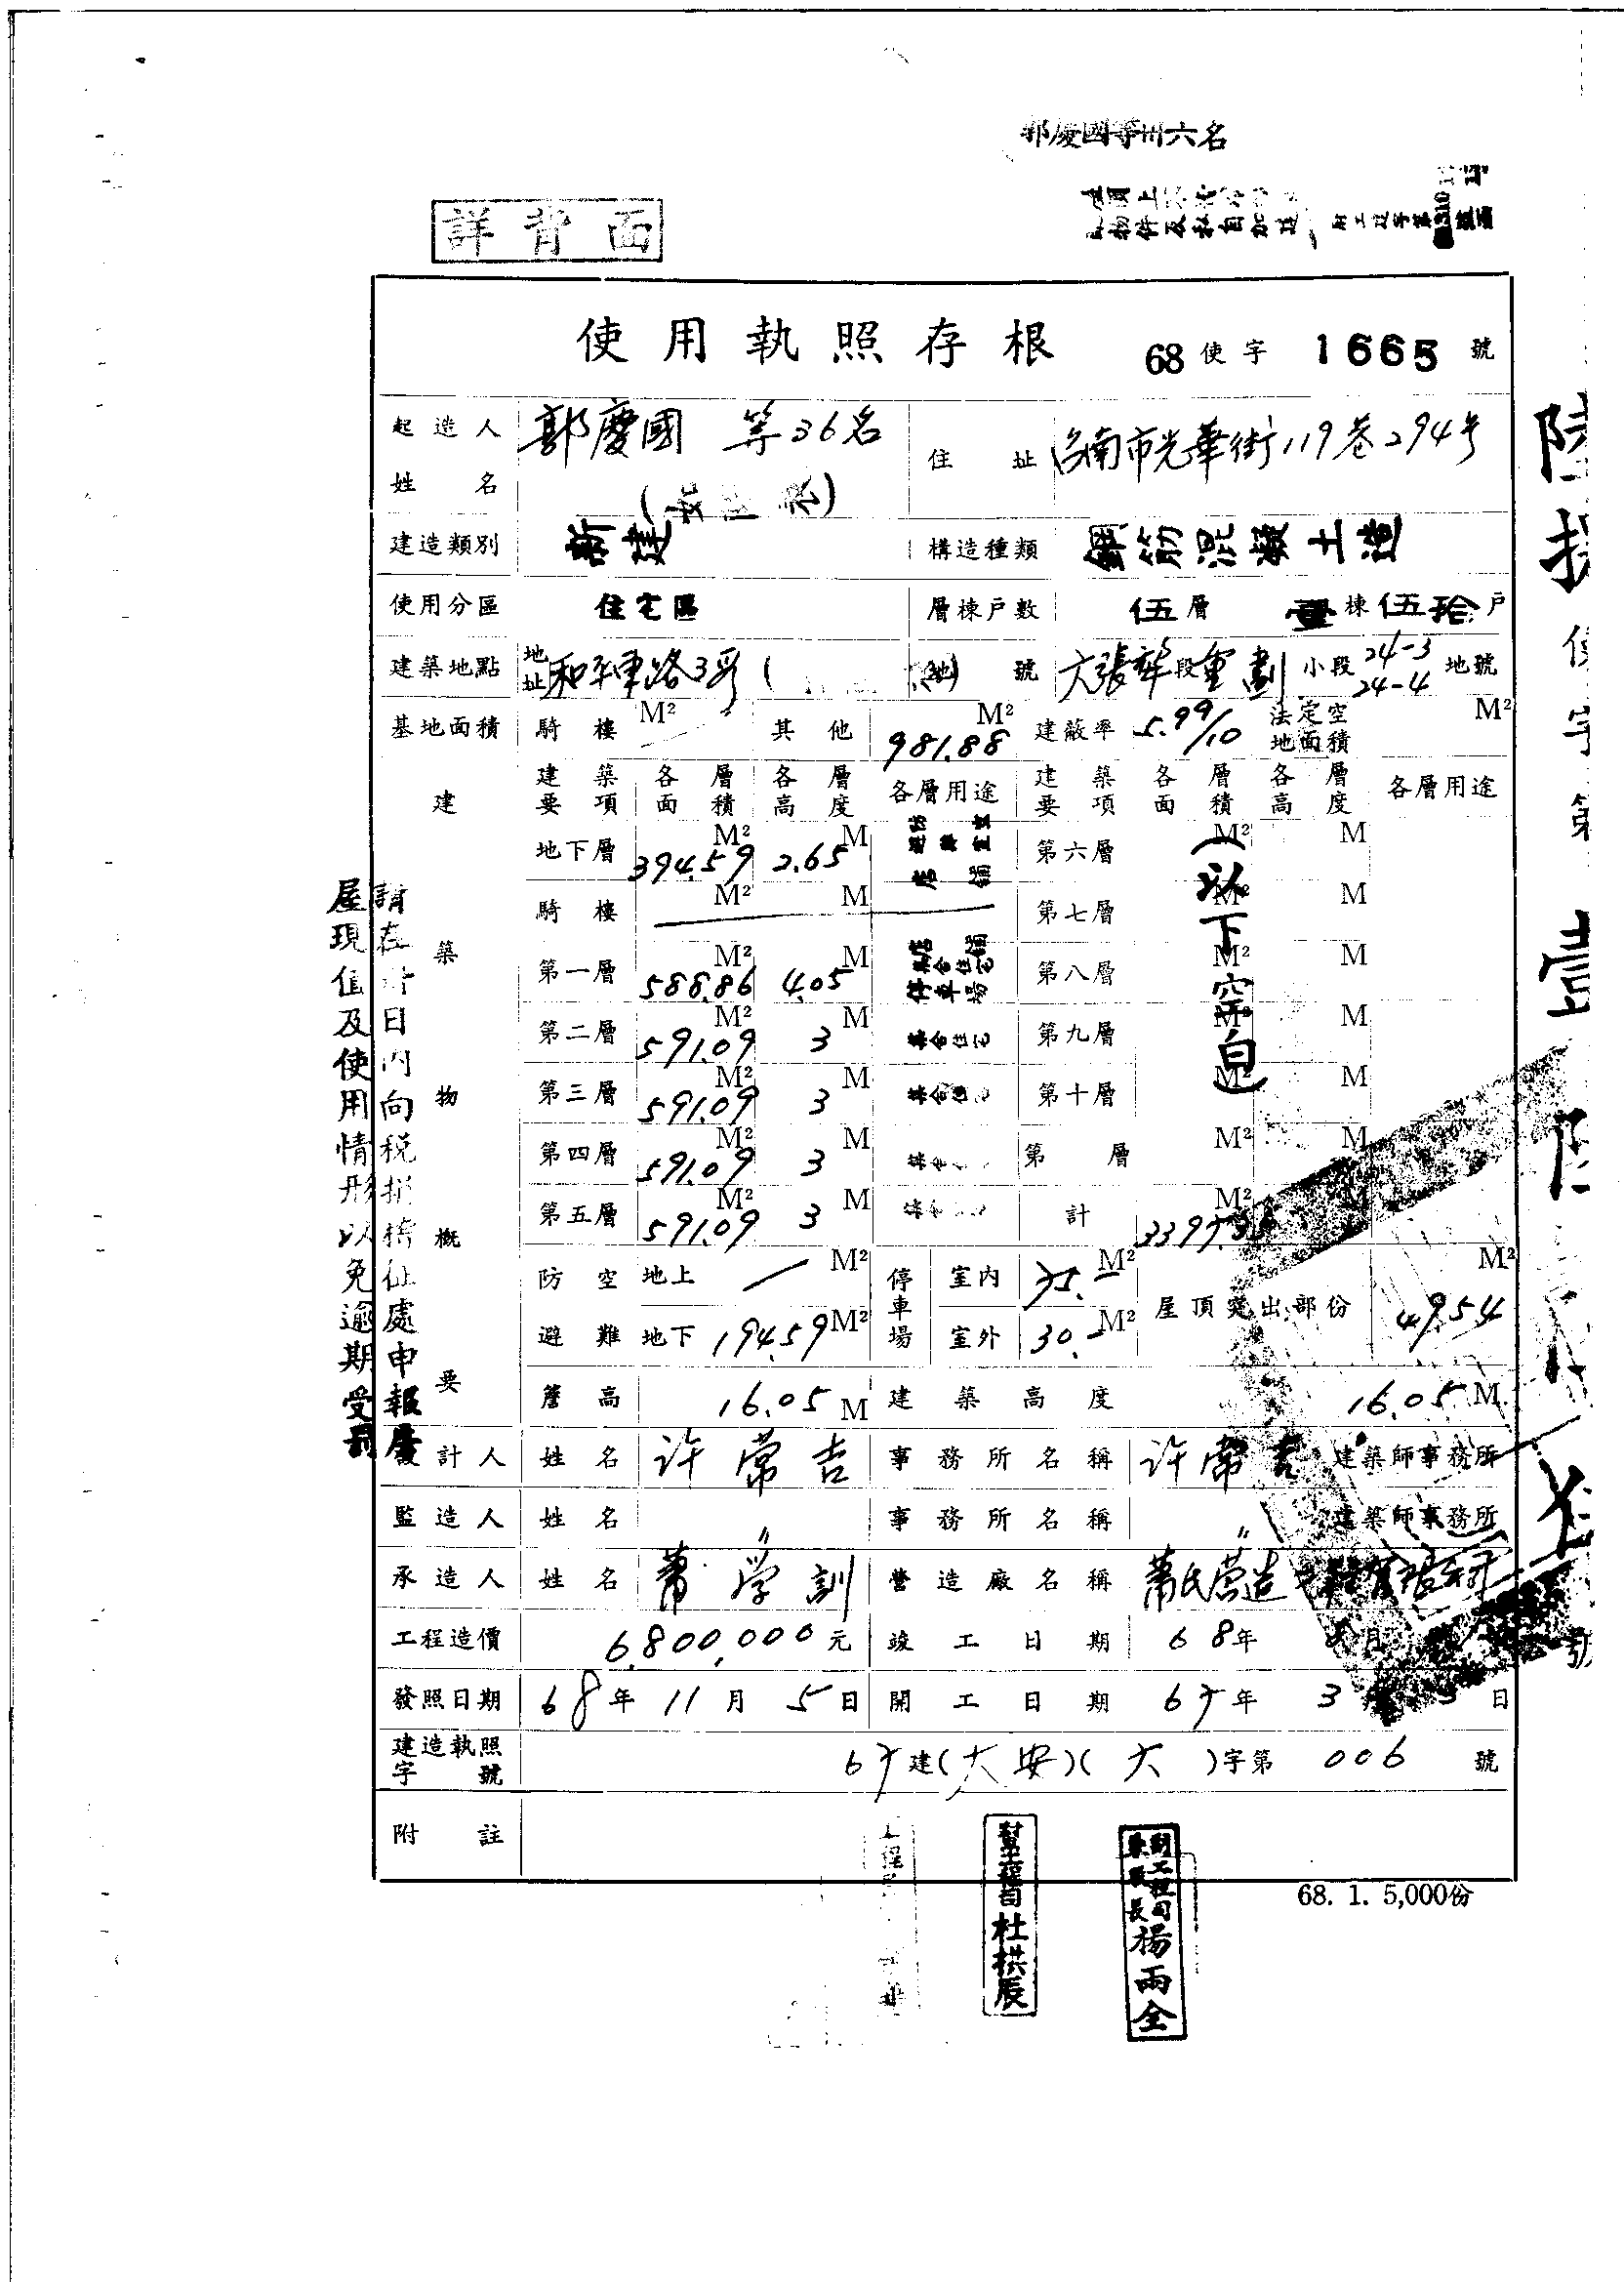 郭慶國等卅六名
詳背面
使用執照存根 68使字 1665 號
起造人姓名 郭慶國 等36名 住址 台南市光華街119巷294号
建造類別 新建 構造種類 鋼筋混凝土造
使用分區 住宅區 層棟戶數 伍層 壹棟伍拾戶
建築地點 地址 和平東路3段 ( 地號 六張犁段重劃小段 24-3 24-4 地號
基地面積 騎樓 M² 其他 981.88 M² 建蔽率 5.99/10 法定空地面積 M²
建築物概要
建築要項 各層面積 各層高度 各層用途 建築要項 各層面積 各層高度 各層用途
地下層 394.59 M² 2.65 M 店舖 第六層 M² M
騎樓 M² M 第七層 M² M
第一層 588.86 M² 4.05 M 店舖 集合住宅 停車場 第八層 M² M
第二層 591.09 M² 3 M 集合住宅 第九層 M² M
第三層 591.09 M² 3 M 集合住 第十層 M² M
第四層 591.09 M² 3 M 第 層 M² M
第五層 591.09 M² 3 M 計 M² M
(以下空白)
防空避難 地上 M² 停車場 室內 75.- M² 屋頂突出部份 M²
地下 194.59 M² 室外 30.- M² 49.54
簷高 16.05 M 建築高度 16.05 M
設計人 姓名 许常吉 事務所名稱 许常吉 建築師事務所
監造人 姓名 〃 事務所名稱 〃 建築師事務所
承造人 姓名 蕭学訓 營造廠名稱 蕭氏营造
工程造價 6,800,000元 竣工日期 68年 月
發照日期 68年11月5日 開工日期 67年3 日
建造執照字號 67建(大安)(六)字第006號
附註
68. 1. 5,000份
請在廿日內向稅捐稽征處申報房
屋現值及使用情形以免逾期受罰
幫工程司 杜拱辰
副工程司兼股長 楊雨全